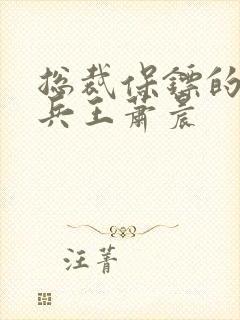 总裁保镖的
兵王萧晨
汪菁